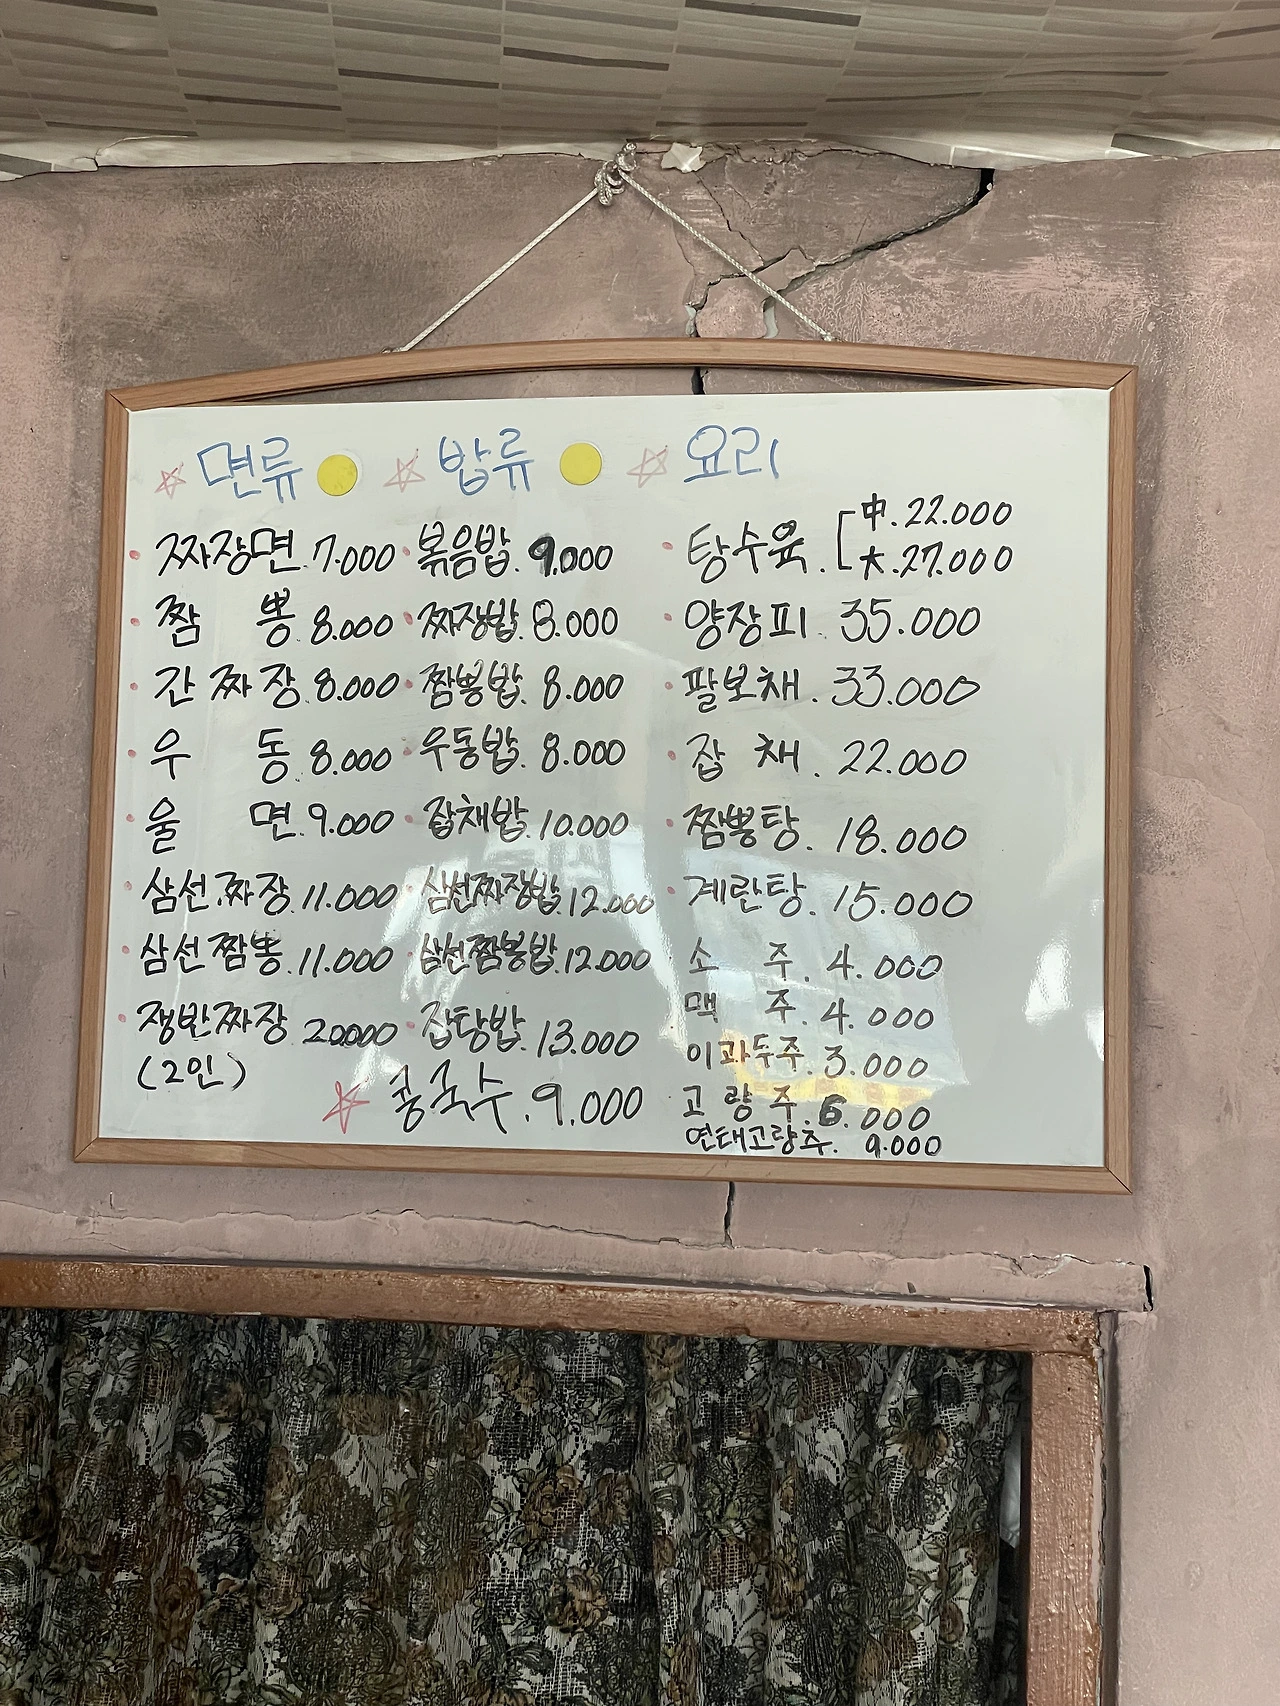 면류 밥류 요리
짜장면. 7.000
짬 뽕 8.000
간 짜 장. 8.000
우 동. 8.000
울 면. 9.000
삼선.짜장. 11.000
삼선짬뽕. 11.000
쟁반짜장 20000
(2인)
볶음밥. 9.000
짜장밥. 8.000
짬뽕밥. 8.000
우동밥. 8.000
잡채밥. 10.000
삼선짜장밥. 12.000
삼선짬뽕밥. 12.000
잡탕밥. 13.000
콩국수. 9.000
탕수육. [中. 22.000
大. 27.000
양장피. 35.000
팔보채. 33.000
잡 채. 22.000
짬뽕탕. 18.000
계란탕. 15.000
소 주. 4.000
맥 주. 4.000
이과두주. 3.000
고 량 주. 6.000
연태고량주. 9.000